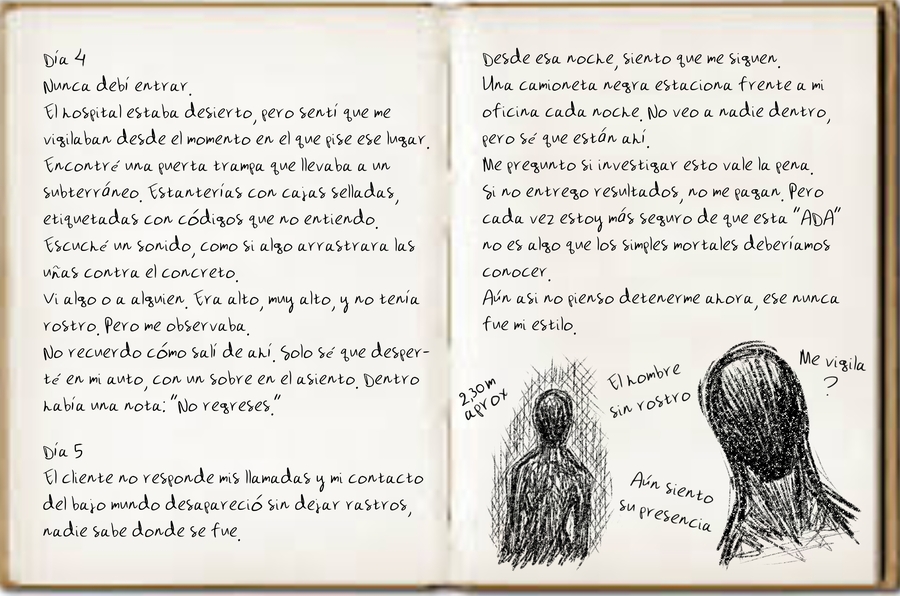 Día 4
Nunca debí entrar.
El hospital estaba desierto, pero sentí que me
vigilaban desde el momento en el que pise ese lugar.
Encontré una puerta trampa que llevaba a un
subterráneo. Estanterías con cajas selladas,
etiquetadas con códigos que no entiendo.
Escuché un sonido, como si algo arrastrara las
uñas contra el concreto.
Vi algo o a alguien. Era alto, muy alto, y no tenía
rostro. Pero me observaba.
No recuerdo cómo salí de ahí. Solo sé que desper-
té en mi auto, con un sobre en el asiento. Dentro
había una nota: "No regreses."
Día 5
El cliente no responde mis llamadas y mi contacto
del bajo mundo desapareció sin dejar rastros,
nadie sabe donde se fue.
Desde esa noche, siento que me siguen.
Una camioneta negra estaciona frente a mi
oficina cada noche. No veo a nadie dentro,
pero sé que están ahí.
Me pregunto si investigar esto vale la pena.
Si no entrego resultados, no me pagan. Pero
cada vez estoy más seguro de que esta "ADA"
no es algo que los simples mortales deberíamos
conocer.
Aún asi no pienso detenerme ahora, ese nunca
fue mi estilo.
2,30m
aprox
El hombre
sin rostro
Me vigila
?
Aún siento
su presencia